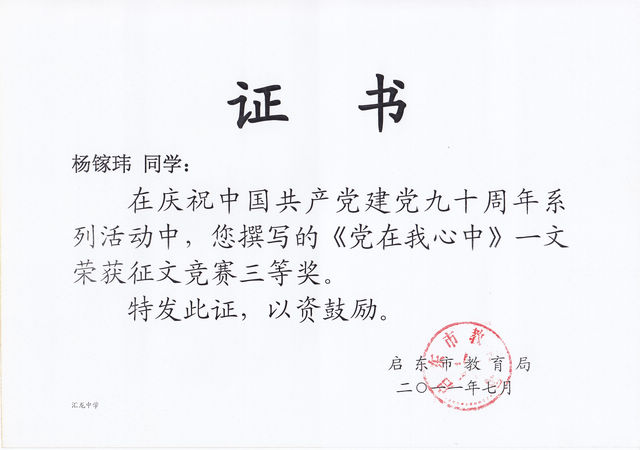 证 书
杨镓玮 同学：
在庆祝中国共产党建党九十周年系
列活动中，您撰写的《党在我心中》一文
荣获征文竞赛三等奖。
特发此证，以资鼓励。
启东市教育局
二〇一一年七月
汇龙中学